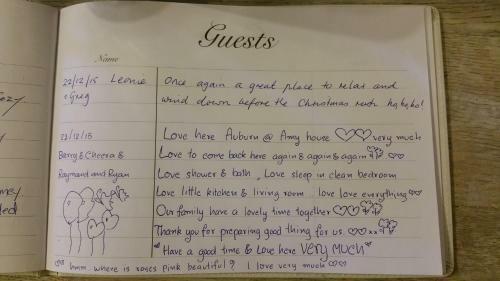 Guests
Name
22/12/15 Leonie Once again a great place to relax and
& Greg wind down before the Christmas rush ha ha ha!
23/12/15 Love here Auburn @ Amy house very much
Barry & Cheera & Love to come back here again & again & again
Raymond and Ryan Love shower & bath, Love sleep in clean bedroom
Love little kitchen & living room love love everything
Our family have a lovely time together
Thank you for preparing good thing for us. xx
"Have a good time & Love here VERY MUCH"
hmm where is roses pink beautiful? I love very much